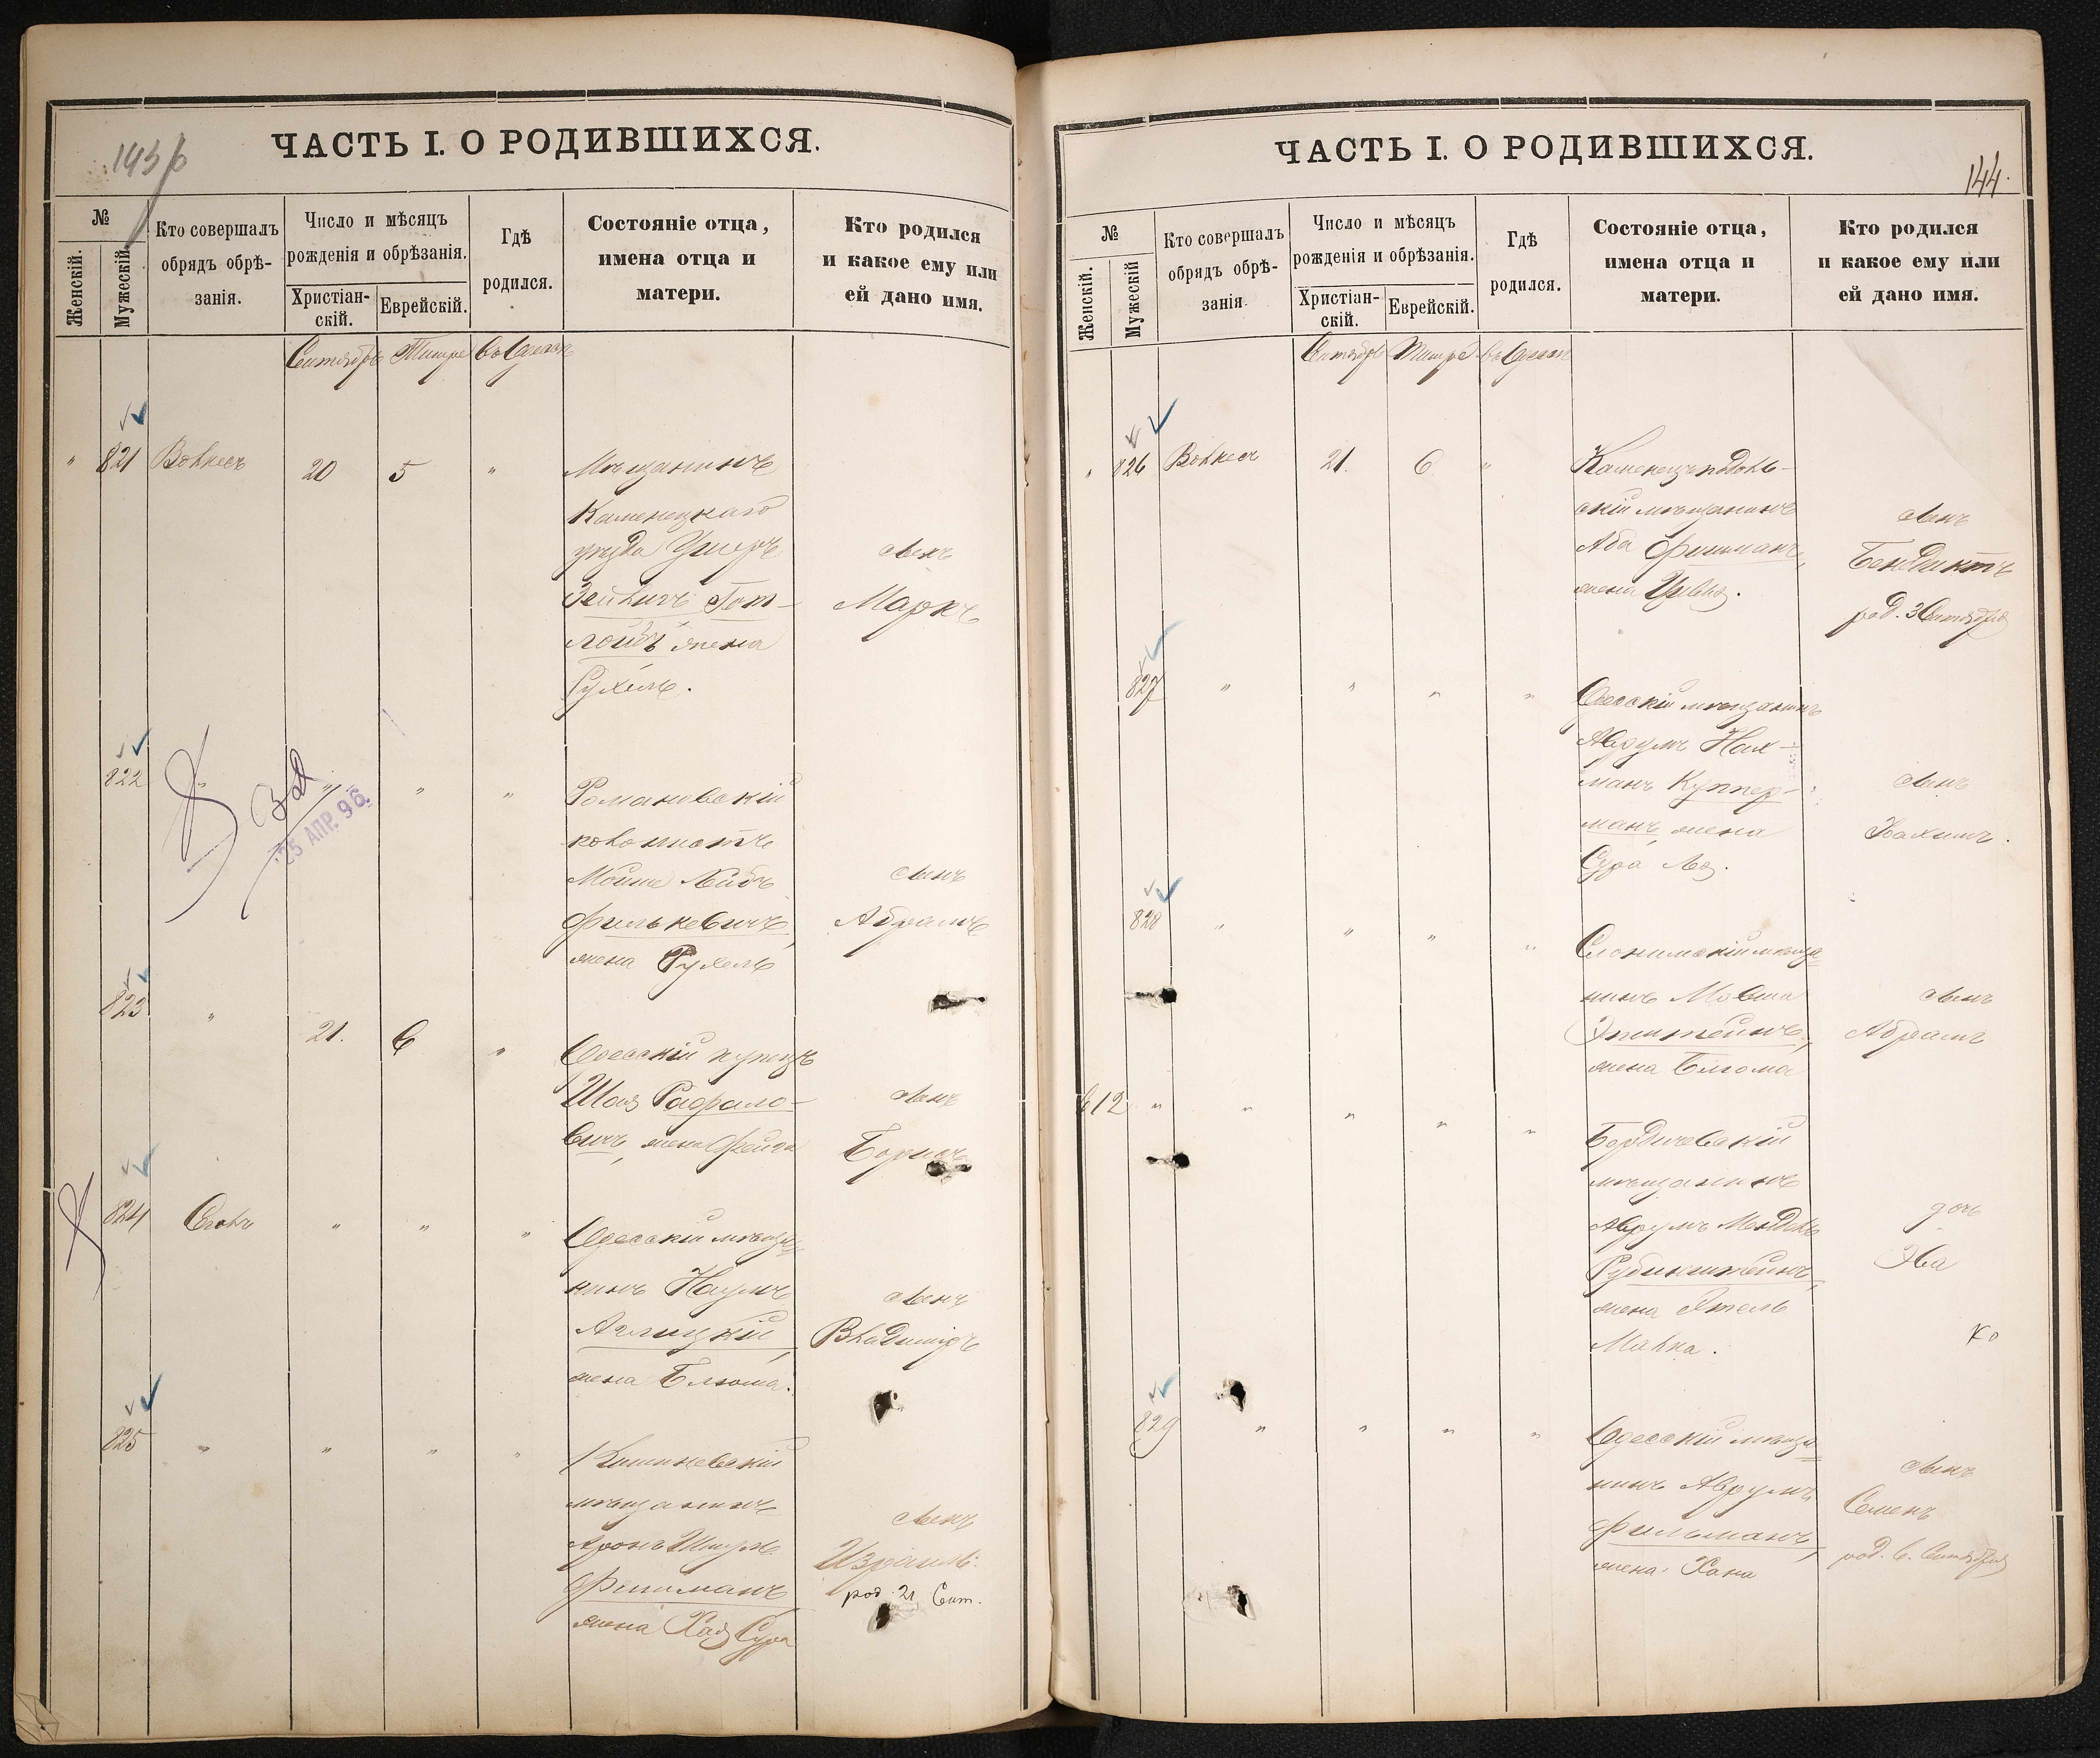 143 б
ЧАСТЬ I. О РОДИВШИХСЯ.
№
Женскій.
Мужескій.
Кто совершалъ
обрядъ обрѣ-
занія.
Число и мѣсяцъ
рожденія и обрѣзанія.
Христіан-
скій.
Еврейскій.
Гдѣ
родился.
Состояніе отца,
имена отца и
матери.
Кто родился
и какое ему или
ей дано имя.
Сентябрь Тишре въ Одессѣ
" 821 Волкесъ 20 5 "
Мѣщанинъ
Каменецкаго
уѣзда Ушеръ
Зейликъ Гот-
лойбъ жена
Рухель.
сынъ
Маркъ
822 " " " "
25 АПР. 96.
Романовскій
колонистъ
Мойше Лейбъ
Филькевичъ,
жена Рухель
сынъ
Абрамъ
823 " 21. 6 "
Одесскій купецъ
Шая Рафало-
вичъ, жена Фейга
сынъ
Борисъ
824 Сеголъ " " "
Одесскій мѣща-
нинъ Наумъ
Аглицкій,
жена Блюма.
сынъ
Владиміръ
825 " " " "
Кишиневскій
мѣщанинъ
Аронъ Шмулъ
Фишманъ
жена Хая Сура
сынъ
Израиль.
род. 21 Сент.
144.
ЧАСТЬ I. О РОДИВШИХСЯ.
№
Женскій.
Мужескій
Кто совершалъ
обрядъ обрѣ-
занія.
Число и мѣсяцъ
рожденія и обрѣзанія.
Христіан-
скій.
Еврейскій.
Гдѣ
родился.
Состояніе отца,
имена отца и
матери.
Кто родился
и какое ему или
ей дано имя.
Сентябрь Тишре въ Одессѣ
" 826 Волкесъ 21. 6 "
Каменецъподоль-
скій мѣщанинъ
Аба Фишманъ,
жена Цивья.
сынъ
Бендиктъ
род. 3 Сентября
827 " " " "
Одесскій мѣщанинъ
Аврумъ Нах-
манъ Куппер-
манъ, жена
Сура Лея.
сынъ
Нахимъ.
828 " " " "
Слонимскій мѣща-
нинъ Мовша
Эпштейнъ,
жена Блюма
сынъ
Абрамъ
612 " " " " "
Бердичевскій
мѣщанинъ
Аврумъ Мендель
Рубинштейнъ,
жена Этель
Малка.
дочь
Эва
829 " " " "
Одесскій мѣща-
нинъ Аврумъ
Фильманъ,
жена Хана
сынъ
Семенъ
род. 6. Сентября